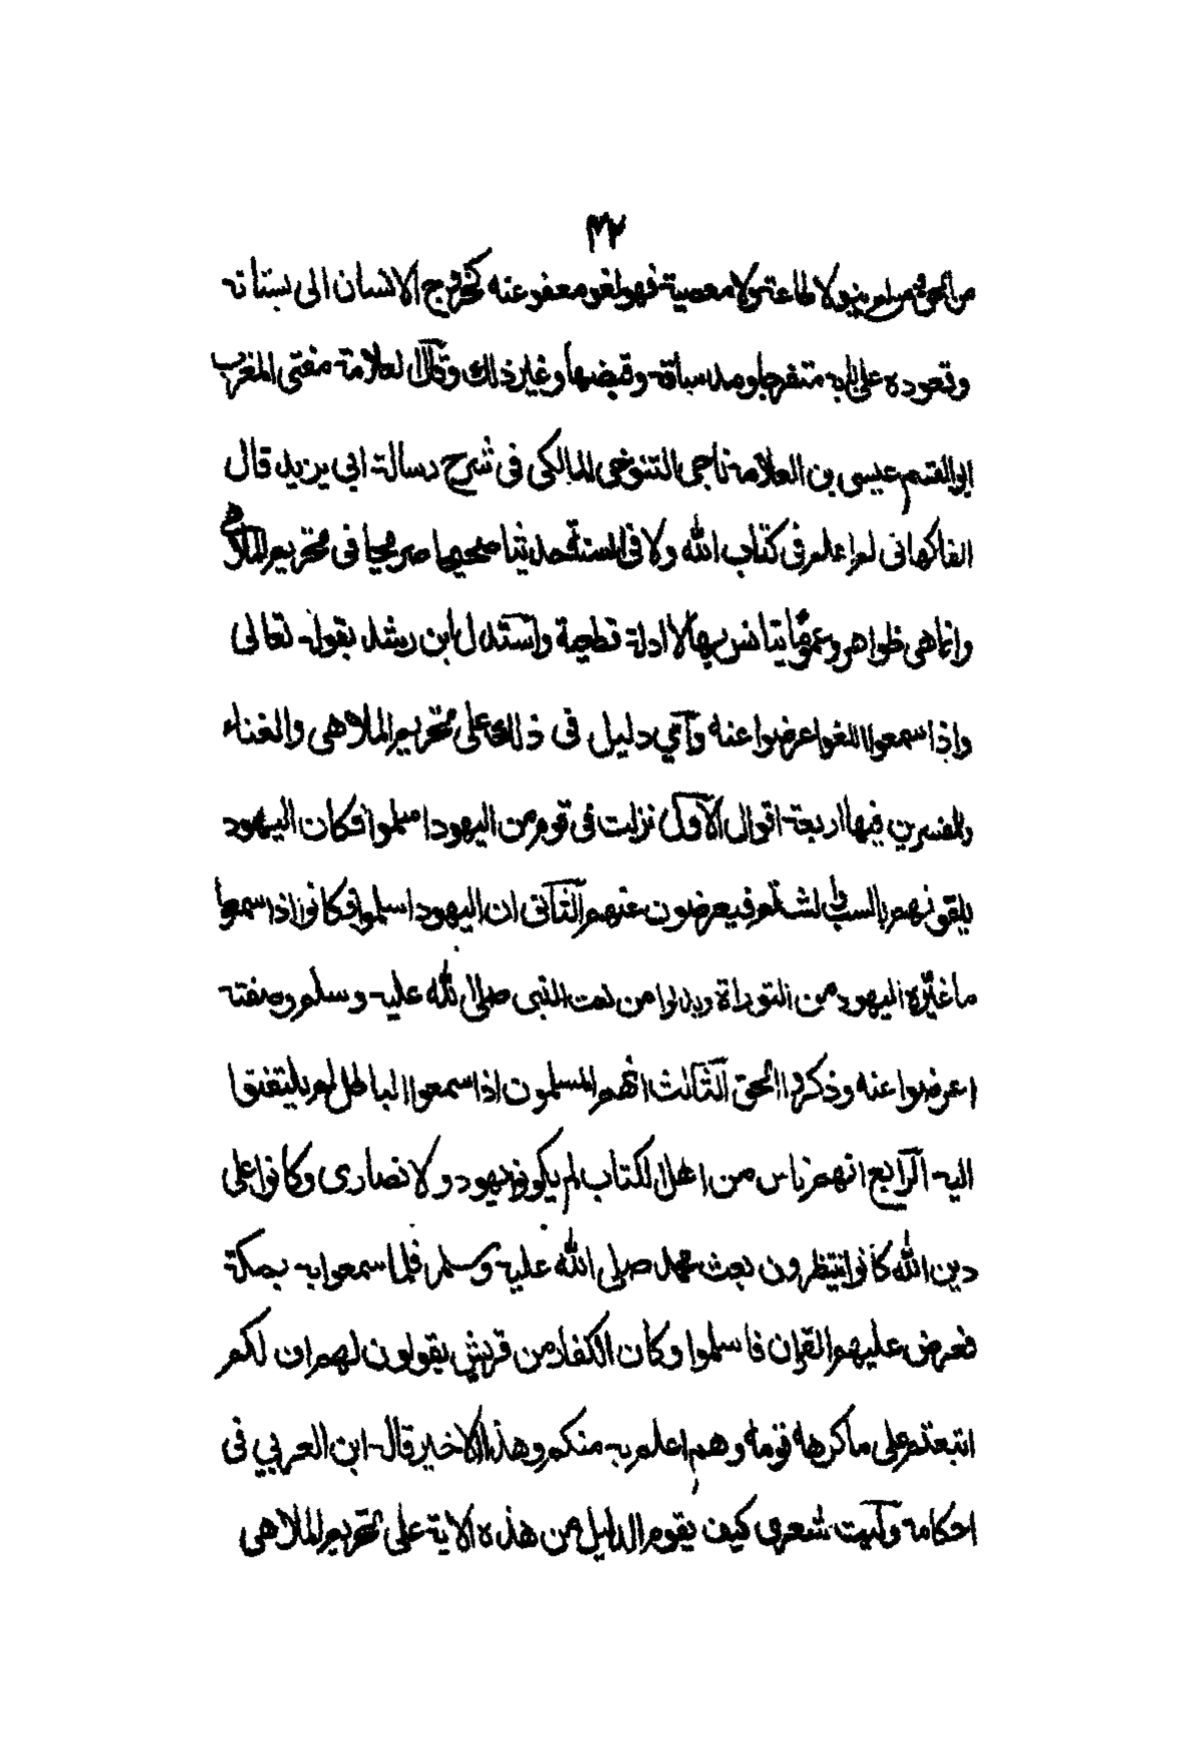 ٣٢
ولا طاعة ولا معصية فهو لغو معفو عنه كخروج الانسان الى بستانه
وقعوده على بابه متفرجا ومد ساقه وقبضها وغير ذلك وقال العلامة مفتى المغرب
ابوالقسم عيسى بن العلامة ناجى التنوخى المالكى فى شرح رسالة ابي يزيد قال
الفاكهانى لم اعلم فى كتاب الله ولا فى السنة حديثا صحيحا صريحا فى تحريم الملاهى
وانما هى ظواهر وعمومات يتانس بها لا ادلة قطعية واستدل ابن رشد بقوله تعالى
واذا سمعوا اللغو اعرضوا عنه واي دليل فى ذلك على تحريم الملاهى والغناء
وللمفسرين فيها اربعة اقوال الاول نزلت فى قوم من اليهود اسلموا فكان اليهود
يلقونهم بالسب والشتم فيعرضون عنهم الثانى ان اليهود اسلموا فكانوا اذا سمعوا
ما غيره اليهود من التوراة وبدلوا من نعت النبى صلى الله عليه وسلم وصفته
اعرضوا عنه وذكروا الحق الثالث انهم المسلمون اذا سمعوا الباطل لم يلتفتوا
اليه الرابع انهم ناس من اهل الكتاب لم يكونوا يهود ولا نصارى وكانوا على
دين الله كانوا ينتظرون بعث محمد صلى الله عليه وسلم فلما سمعوا به بمكة
فعرض عليهم القران فاسلموا وكان الكفار من قريش يقولون لهم اف لكم
اتبعتم على ما كرهه قومه وهم اعلم به منكم وهذا الاخير قال ابن العربي فى
احكامه وليت شعرى كيف يقوم الدليل من هذه الاية على تحريم الملاهى